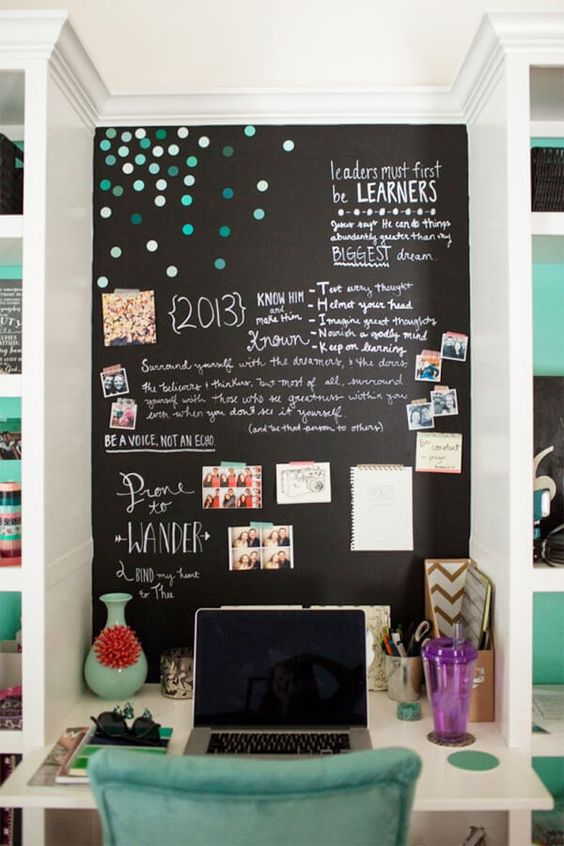 leaders must first
be LEARNERS
Jesus says He can do things
abundantly greater than my
BIGGEST dream.
{2013}
KNOW HIM
and
make Him
Known
- Test every thought
- Helmet your head
- Imagine great thoughts
- Nourish a godly mind
- Keep on learning
Surround yourself with the dreamers, & the doers,
the believers & thinkers, but most of all, surround
yourself with those who see greatness within you
even when you don't see it yourself.
(and be that person to others)
BE A VOICE, NOT AN ECHO.
Be
constant
prayer
Prone
to
WANDER
BIND my heart
to Thee